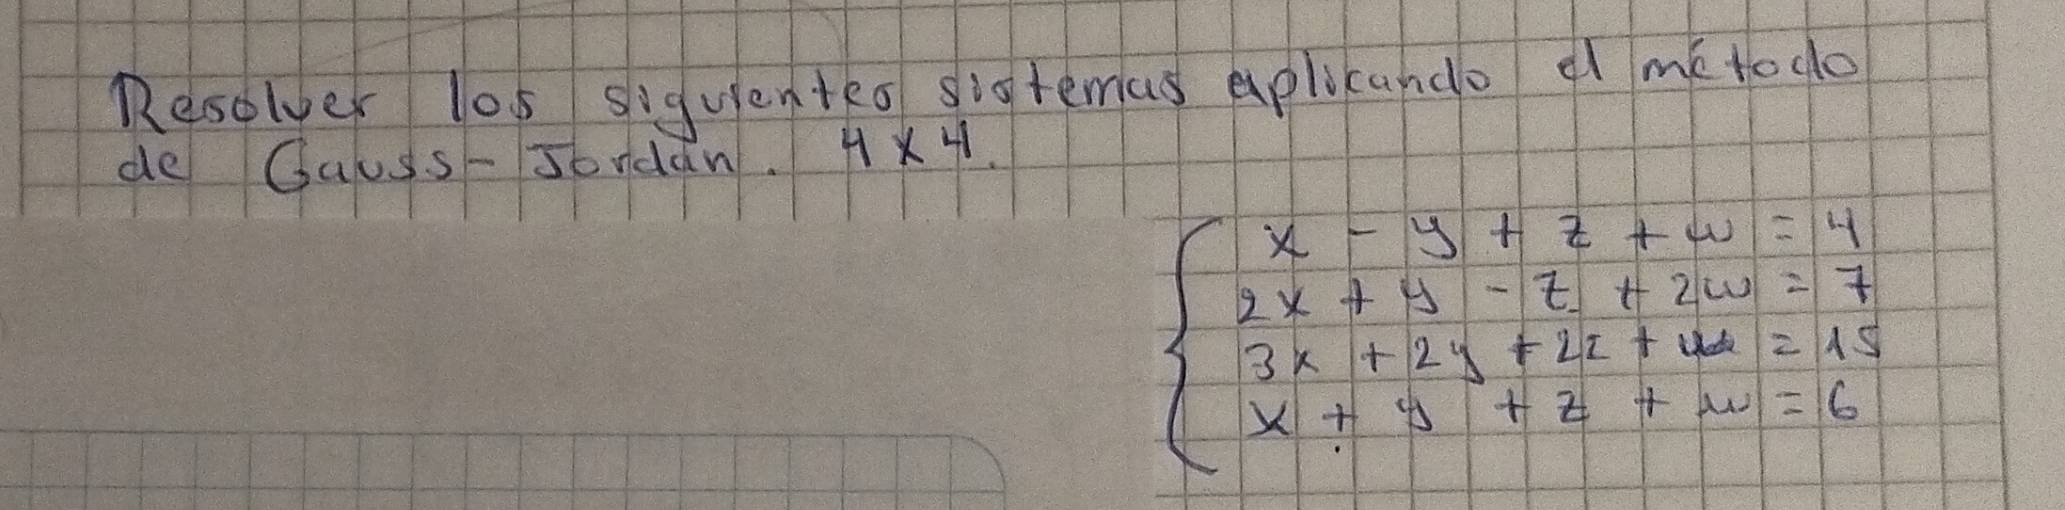 Resolver los siguientes sistemas aplicando el método
de Gauss-Jordan. 4x4.
x - y + z + w = 4
2x + y - z + 2w = 7
3x + 2y + 2z + w = 15
x + y + z + w = 6